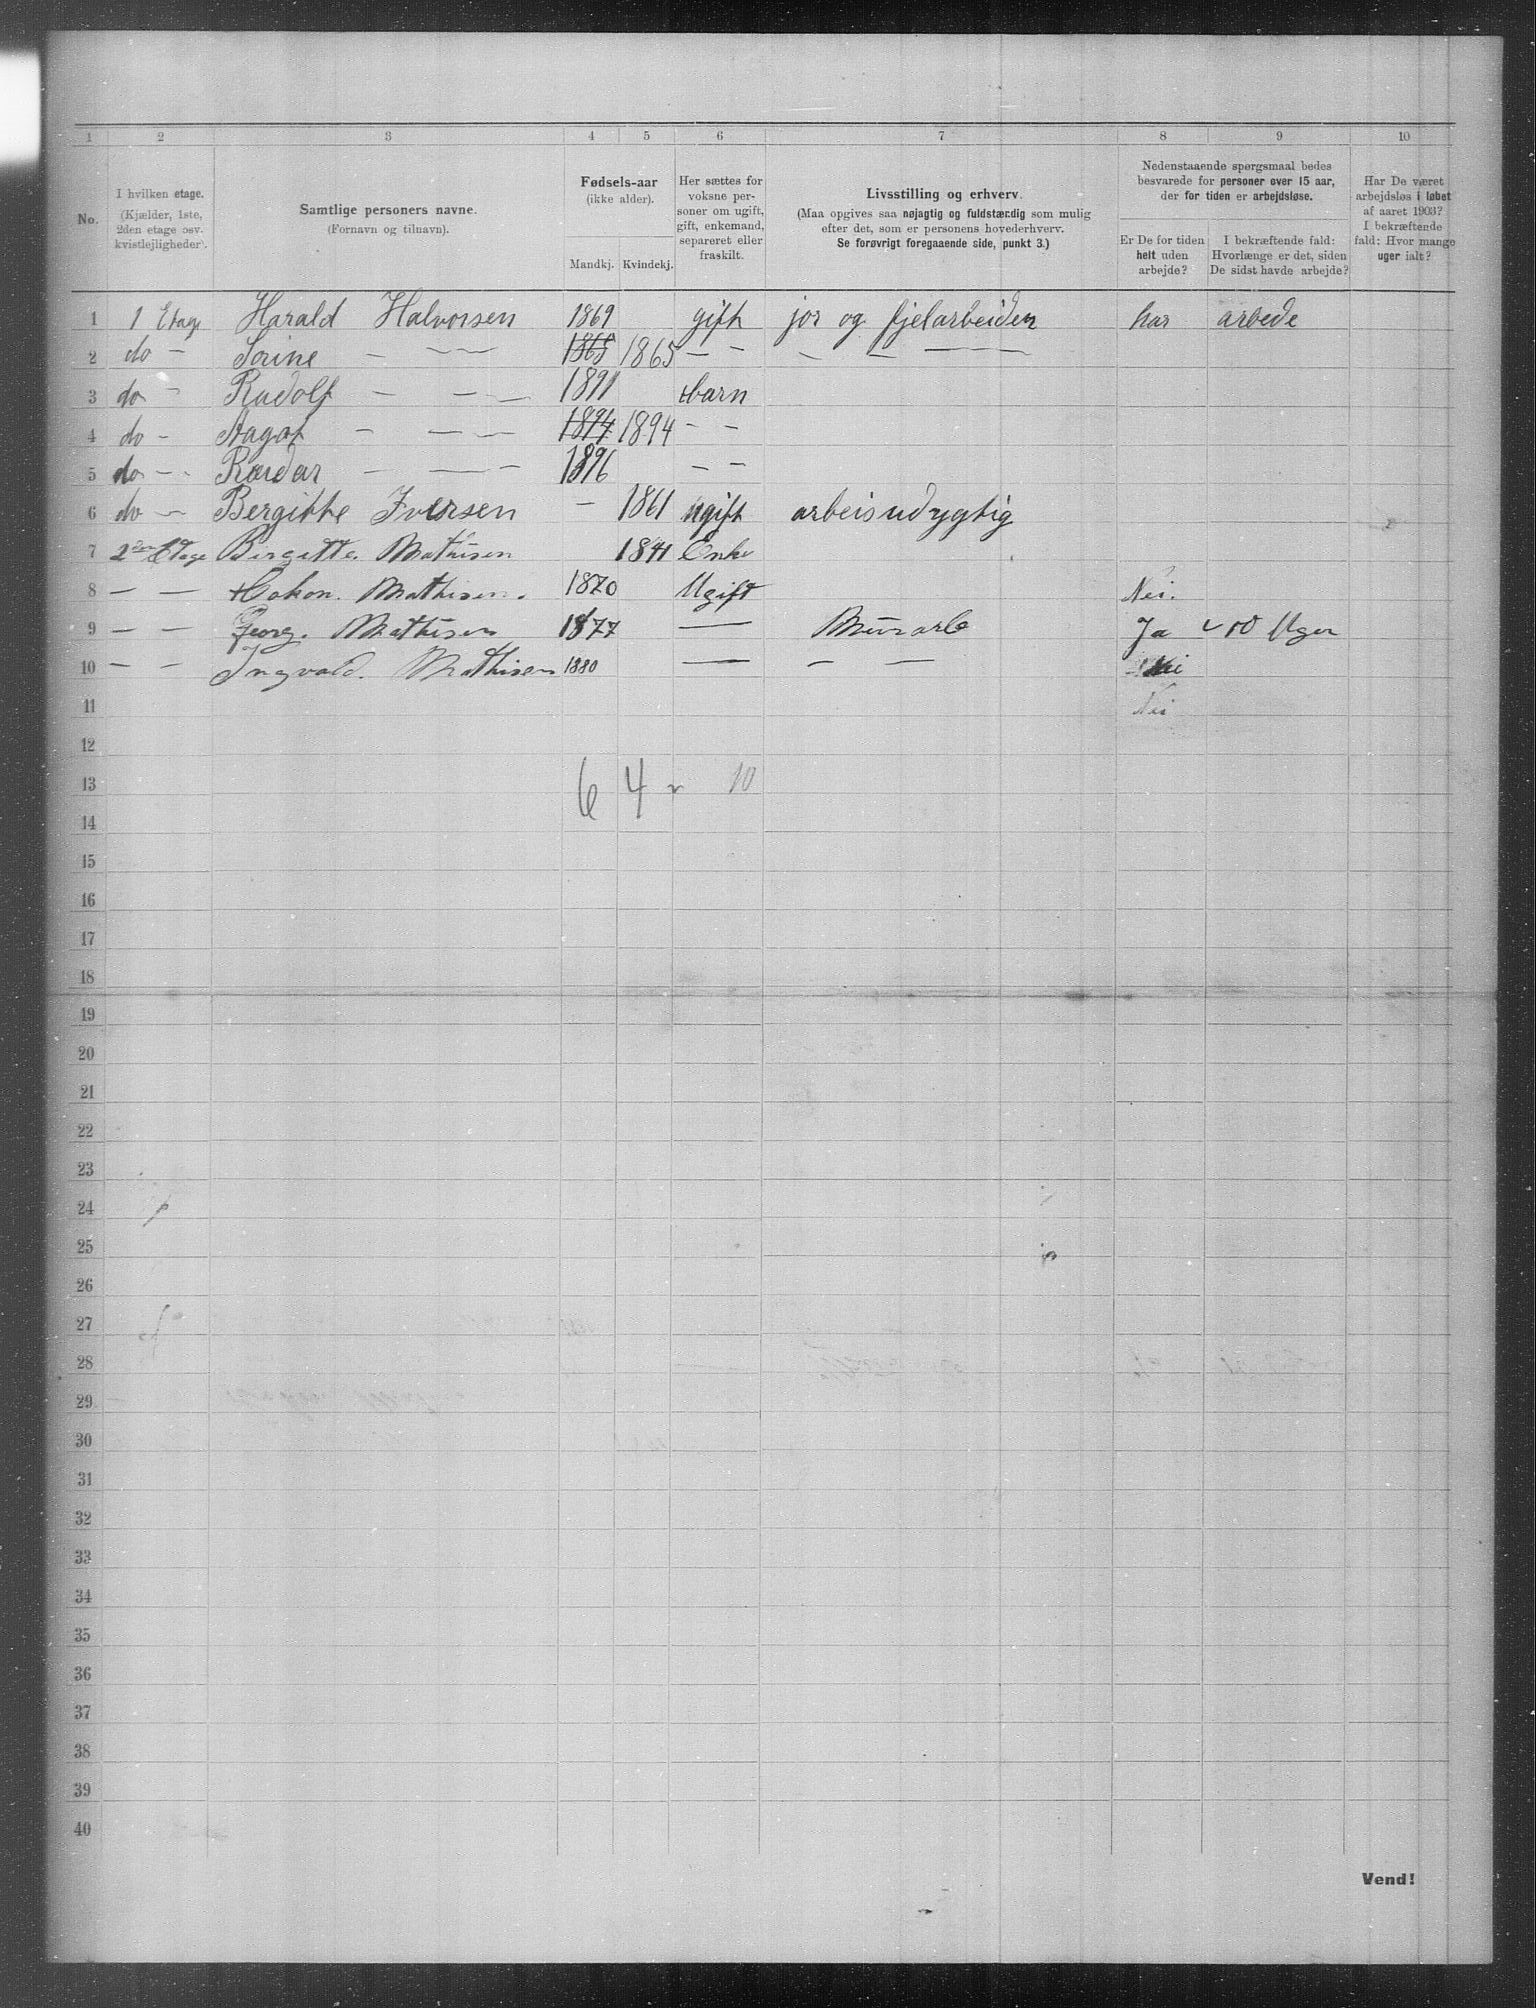 1 2 3 4 5 6 7 8 9 10
No.
I hvilken etage.
(Kjælder, 1ste,
2den etage osv.
kvistlejligheder).
Samtlige personers navne.
(Fornavn og tilnavn).
Fødsels-aar
(ikke alder).
Mandkj. Kvindekj.
Her sættes for
voksne per-
soner om ugift,
gift, enkemand,
separeret eller
fraskilt.
Livsstilling og erhverv.
(Maa opgives saa nøjagtig og fuldstændig som mulig
efter det, som er personens hovederhverv.
Se forøvrigt foregaaende side, punkt 3.)
Nedenstaaende spørgsmaal bedes
besvarede for personer over 15 aar,
der for tiden er arbejdsløse.
Er De for tiden
helt uden
arbejde?
I bekræftende fald:
Hvorlænge er det, siden
De sidst havde arbejde?
Har De været
arbejdsløs i løbet
af aaret 1903?
I bekræftende
fald: Hvor mange
uger ialt?
1 1 Etage Harald Halvorsen 1869 gift jor og fjelarbeider har arbede
2 do - Sorine — — — 1865 1865 — — — — —
3 do - Rudolf — — — 1891 barn
4 do - Aagot — — — 1894 1894 — —
5 do - - Reidar — — — 1896 — —
6 do — Bergitte Iversen — 1861 ugift arbeisudygtig
7 2den Etage Birgitte Mathisen 1841 Enke
8 — — Hakon. Mathisen. 1870 Ugift Nei.
9 — — Georg. Mathisen 1877 — Murarb Ja 10 Uger
10 — — Ingvald. Mathisen 1880 — — — Nei
11 Nei
12
13 6 4 10
14
15
16
17
18
19
20
21
22
23
24
25
26
27
28
29
30
31
32
33
34
35
36
37
38
39
40
Vend!